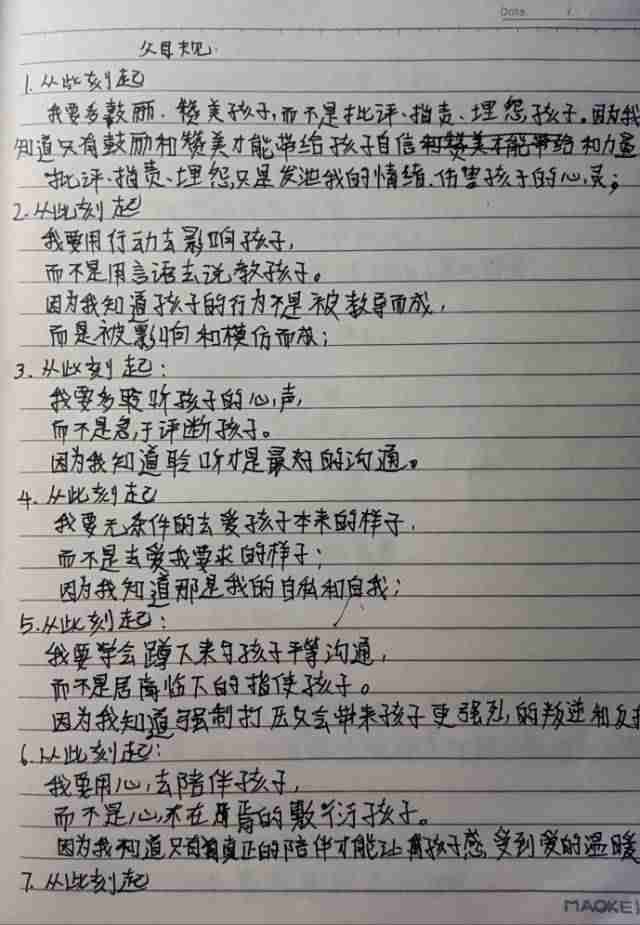 Date.
父母规
1. 从此刻起
我要多鼓励、赞美孩子,而不是批评、指责、埋怨孩子。因为我
知道只有鼓励和赞美才能带给孩子自信和赞美才能带给和力量
批评、指责、埋怨,只是发泄我的情绪、伤害孩子的心灵;
2. 从此刻起
我要用行动去影响孩子,
而不是用言语去说教孩子。
因为我知道孩子的行为不是被教导而成,
而是被影响和模仿而成;
3. 从此刻起:
我要多聆听孩子的心声,
而不是急于评断孩子。
因为我知道聆听才是最好的沟通。
4. 从此刻起
我要无条件的去爱孩子本来的样子,
而不是去爱我要求的样子;
因为我知道那是我的自私和自我;
5. 从此刻起:
我要学会蹲下来与孩子平等沟通,
而不是居高临下的指使孩子。
因为我知道强制打压只会带来孩子更强烈的叛逆和反
6. 从此刻起:
我要用心去陪伴孩子,
而不是心不在焉的敷衍孩子。
因为我知道只有真正的陪伴才能让孩子感受到爱的温暖
7. 从此刻起
MAOKE